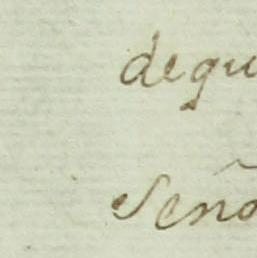 dequ
Seño